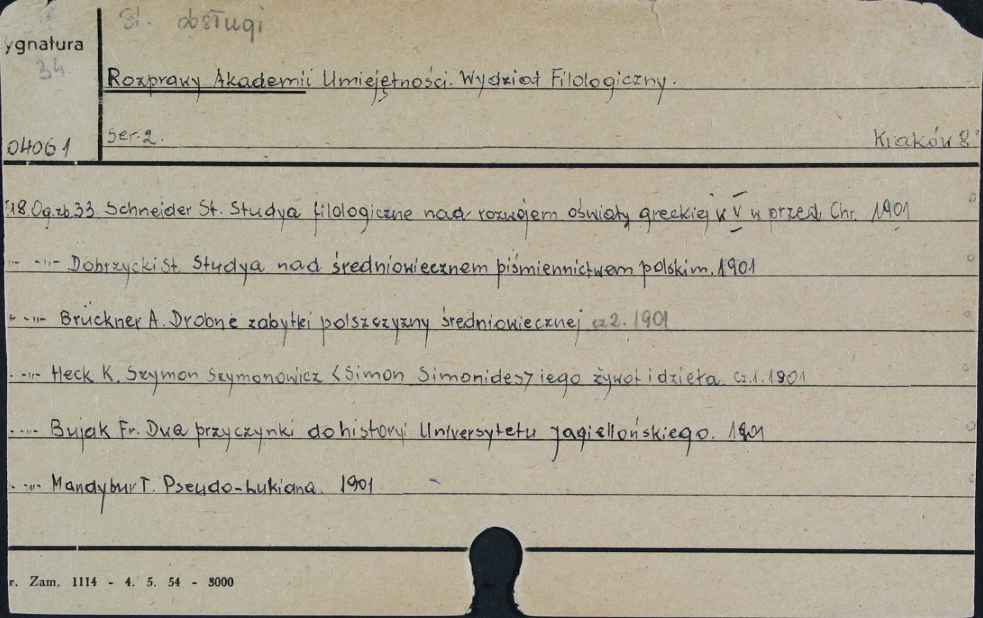 St. obsługi
ygnatura
34
Rozprawy Akademii Umiejętności. Wydział Filologiczny.
04061
Ser. 2.
Kraków 8°
T.18 Og.zb.33 Schneider St. Studya filologiczne nad rozwojem oświaty greckiej w V w przed Chr. 1901
-- -"- Dobrzycki St. Studya nad średniowiecznem piśmiennictwem polskim. 1901
-- -"- Brückner A. Drobne zabytki polszczyzny średniowiecznej cz 2. 1901
-- -"- Heck K. Szymon Szymonowicz <Simon Simonides> iego żywot i dzieła. Cz.1. 1901
-- -"- Bujak Fr. Dwa przyczynki do historyi Uniwersytetu Jagiellońskiego. 1901
-- -"- Mandybur T. Pseudo-Lukiana. 1901
r. Zam. 1114 - 4. 5. 54 - 3000